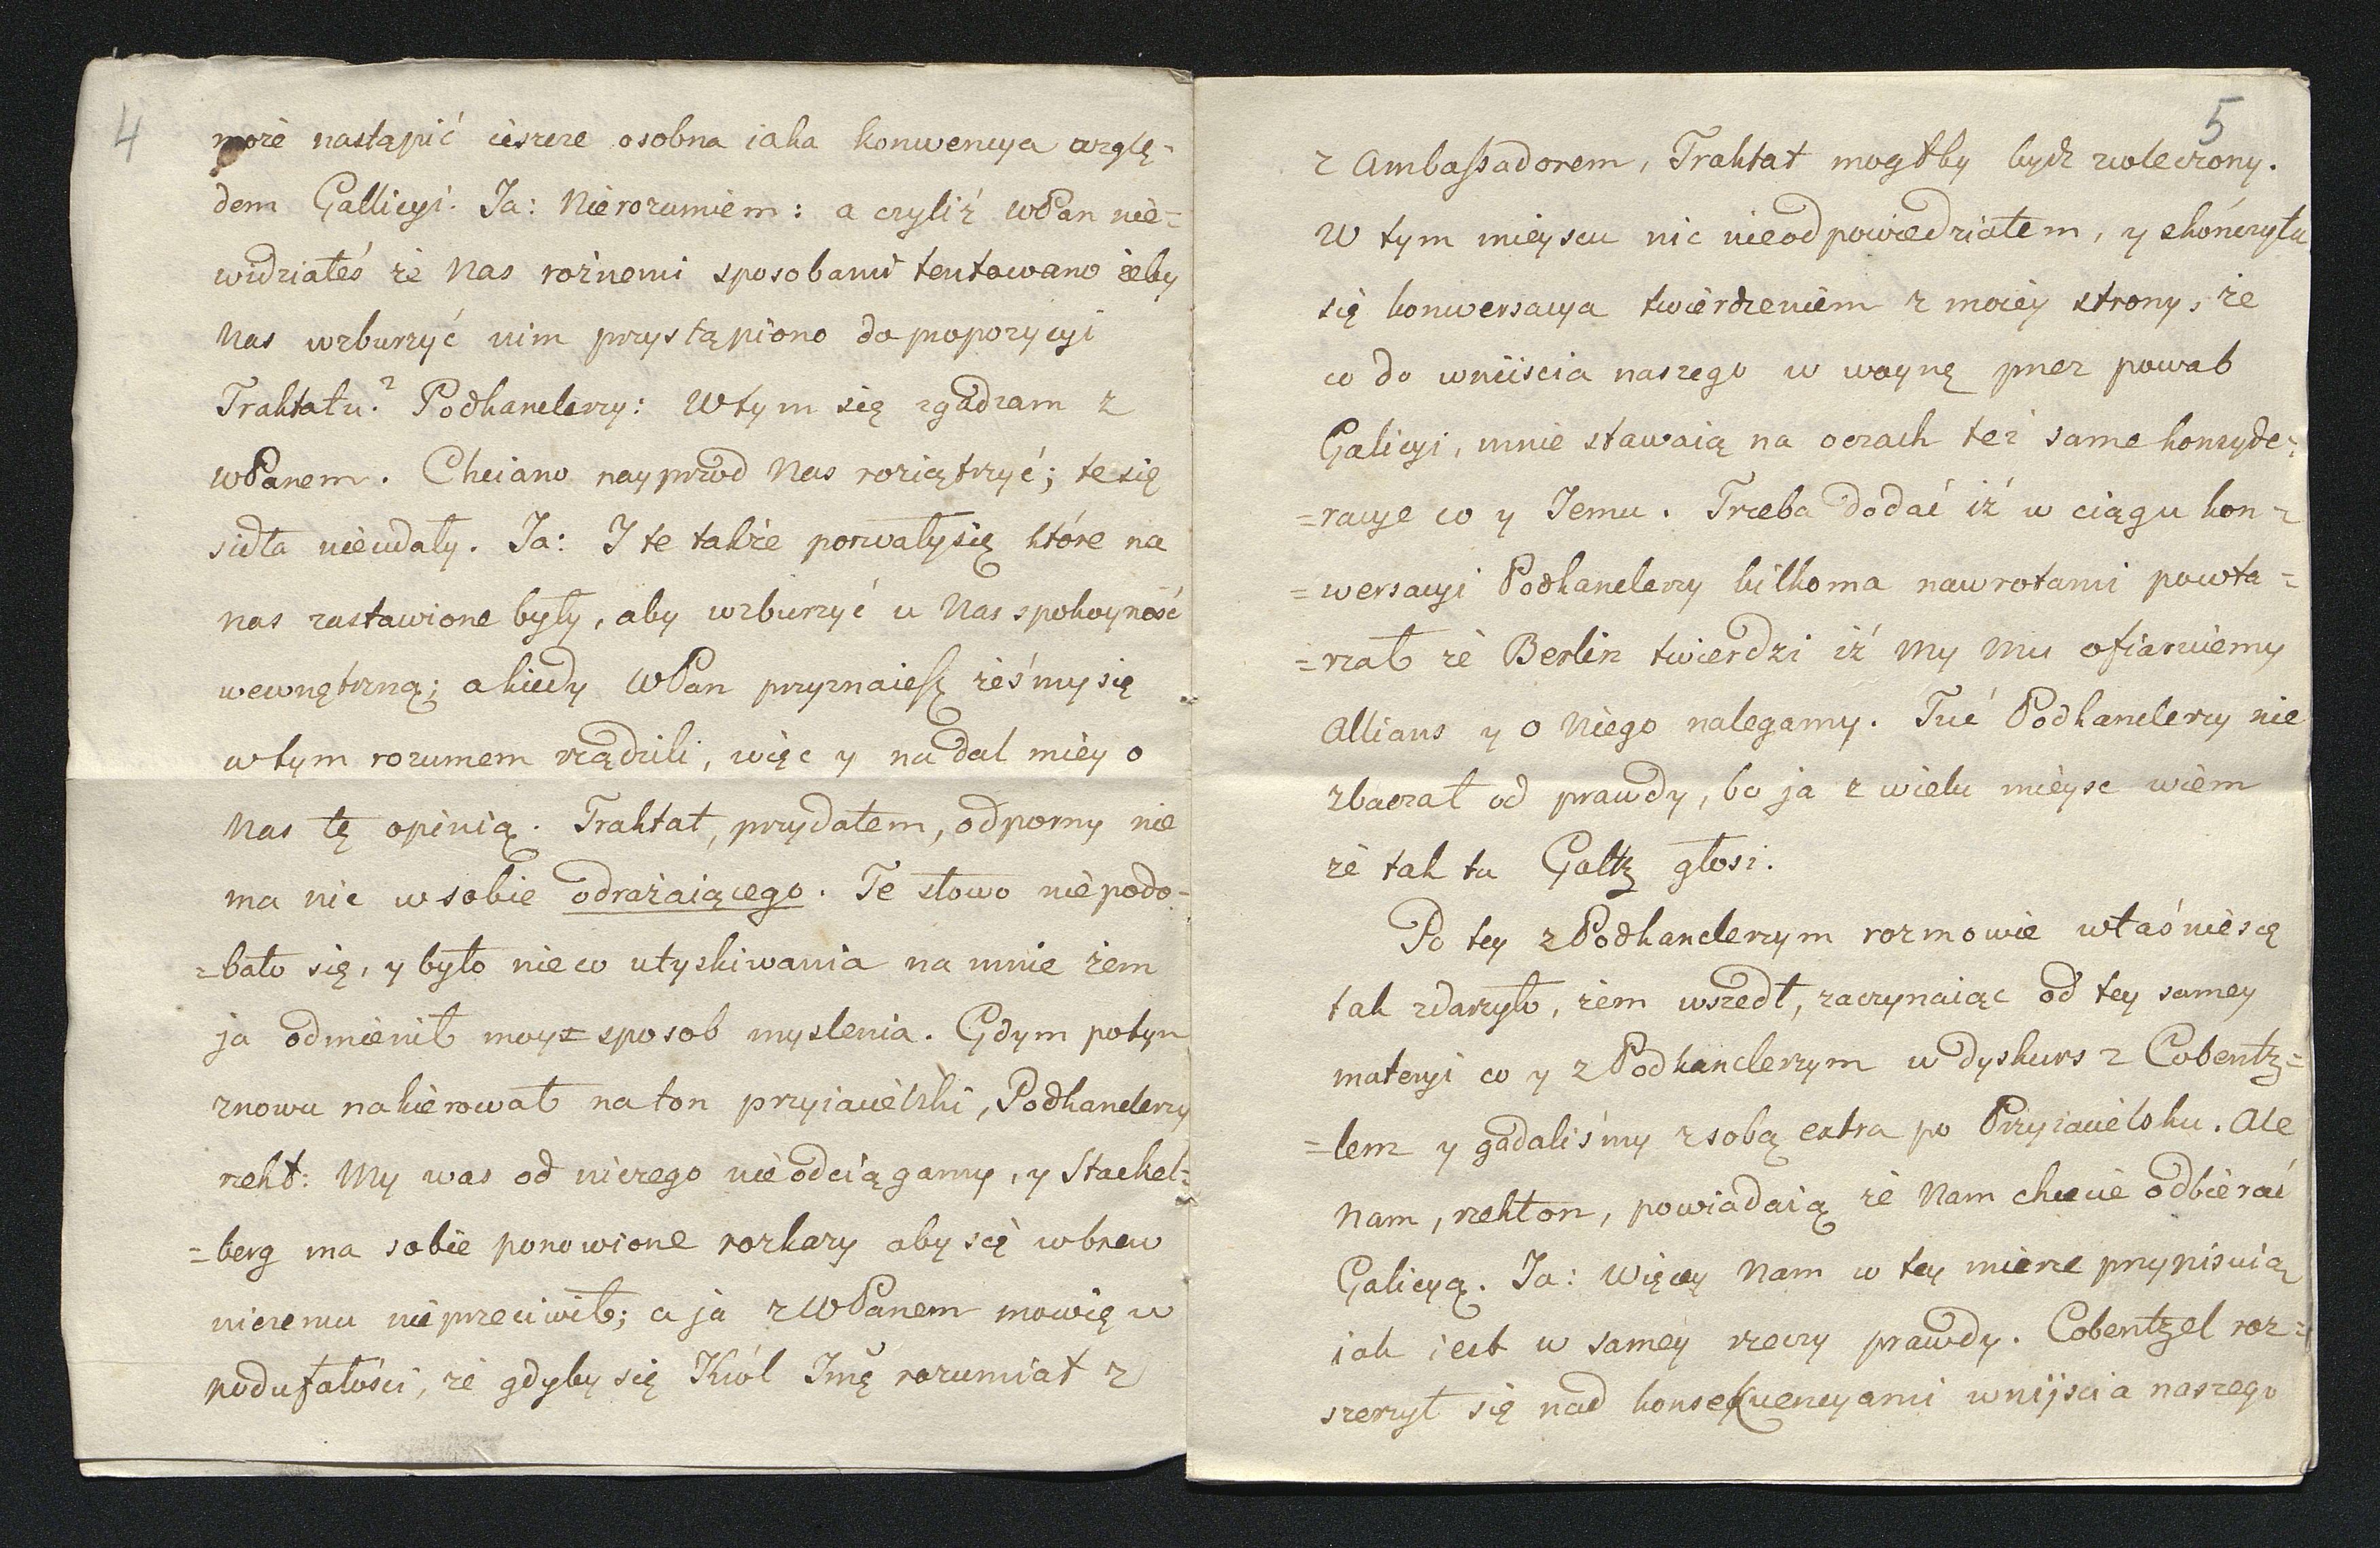 4
może nastąpić ieszcze osobna iaka konwencya wzglę-
dem Gallicyi. Ja: Nierozumiem: a czyliż WPan nie=
widziałeś że Nas rożnemi sposobami tentowano żeby
Nas wzburzyć nim przystąpiono do propozycyi
Traktatu? Podkanclerzy: W tym się zgadzam z
WPanem. Chciano nayprzod Nas roziątrzyć; te się
sidła nieudały. Ja: I te także porwały się które na
nas zastawione były, aby wzburzyć u Nas spokoyność
wewnętrzną; a kiedy WPan przyznaiesz żeśmy się
w tym rozumem rządzili, więc y nadal miey o
Nas tę opinią. Traktat, przydałem, odporny nie
ma nic w sobie odrażaiącego. Te słowo niepodo-
=bało się, y było nieco utyskiwania na mnie żem
ja odmienił moy sposob myslenia. Gdym potym
znowu nakierował na ton przyiacielski, Podkanclerzy
rzekł: My was od niczego nieodciągamy, y Stackel=
=berg ma sobie ponowione rozkazy aby się wbrew
niczemu nieprzeciwił; a ja z WPanem mowię w
poduf​ałości, że gdyby się Król Jmć rozumiał z
5
z Ambassadorem, Traktat mogłby bydź zwleczony.
W tym mieyscu nic nieodpowiedziałem, y skończyła
się konwersacya twierdzeniem z moiey strony, że
co do wniiscia naszego w woynę przez powab
Galicyi, mnie stawaią na oczach też same konsyde=
=racye co y Jemu. Trzeba dodać iż w ciągu kon=
=wersacyi Podkanclerzy kilkoma nawrotami powta=
=rzał że Berlin twierdzi iż My Mu ofiaruiemy
Allians y o Niego nalegamy. Tuć Podkanclerzy nie
zbaczał od prawdy, bo ja z wielu mieysc wiem
że tak tu Goltz głosi.
Po tey z Podkanclerzym rozmowie właśnie się
tak zdarzyło, żem wszedł, zaczynaiąc od tey samey
materyi co y z Podkanclerzym w dyskurs z Cobentz=
=lem y gadaliśmy z sobą extra po Przyiacielsku. Ale
Nam, rzekł on, powiadaią że Nam chcecie odbierać
Galicyą. Ja: Więcey Nam w tey mierze przypisuią
iak iest w samey rzeczy prawdy. Cobentzel roz=
szerzył się nad konsekwencyami wnijscia naszego